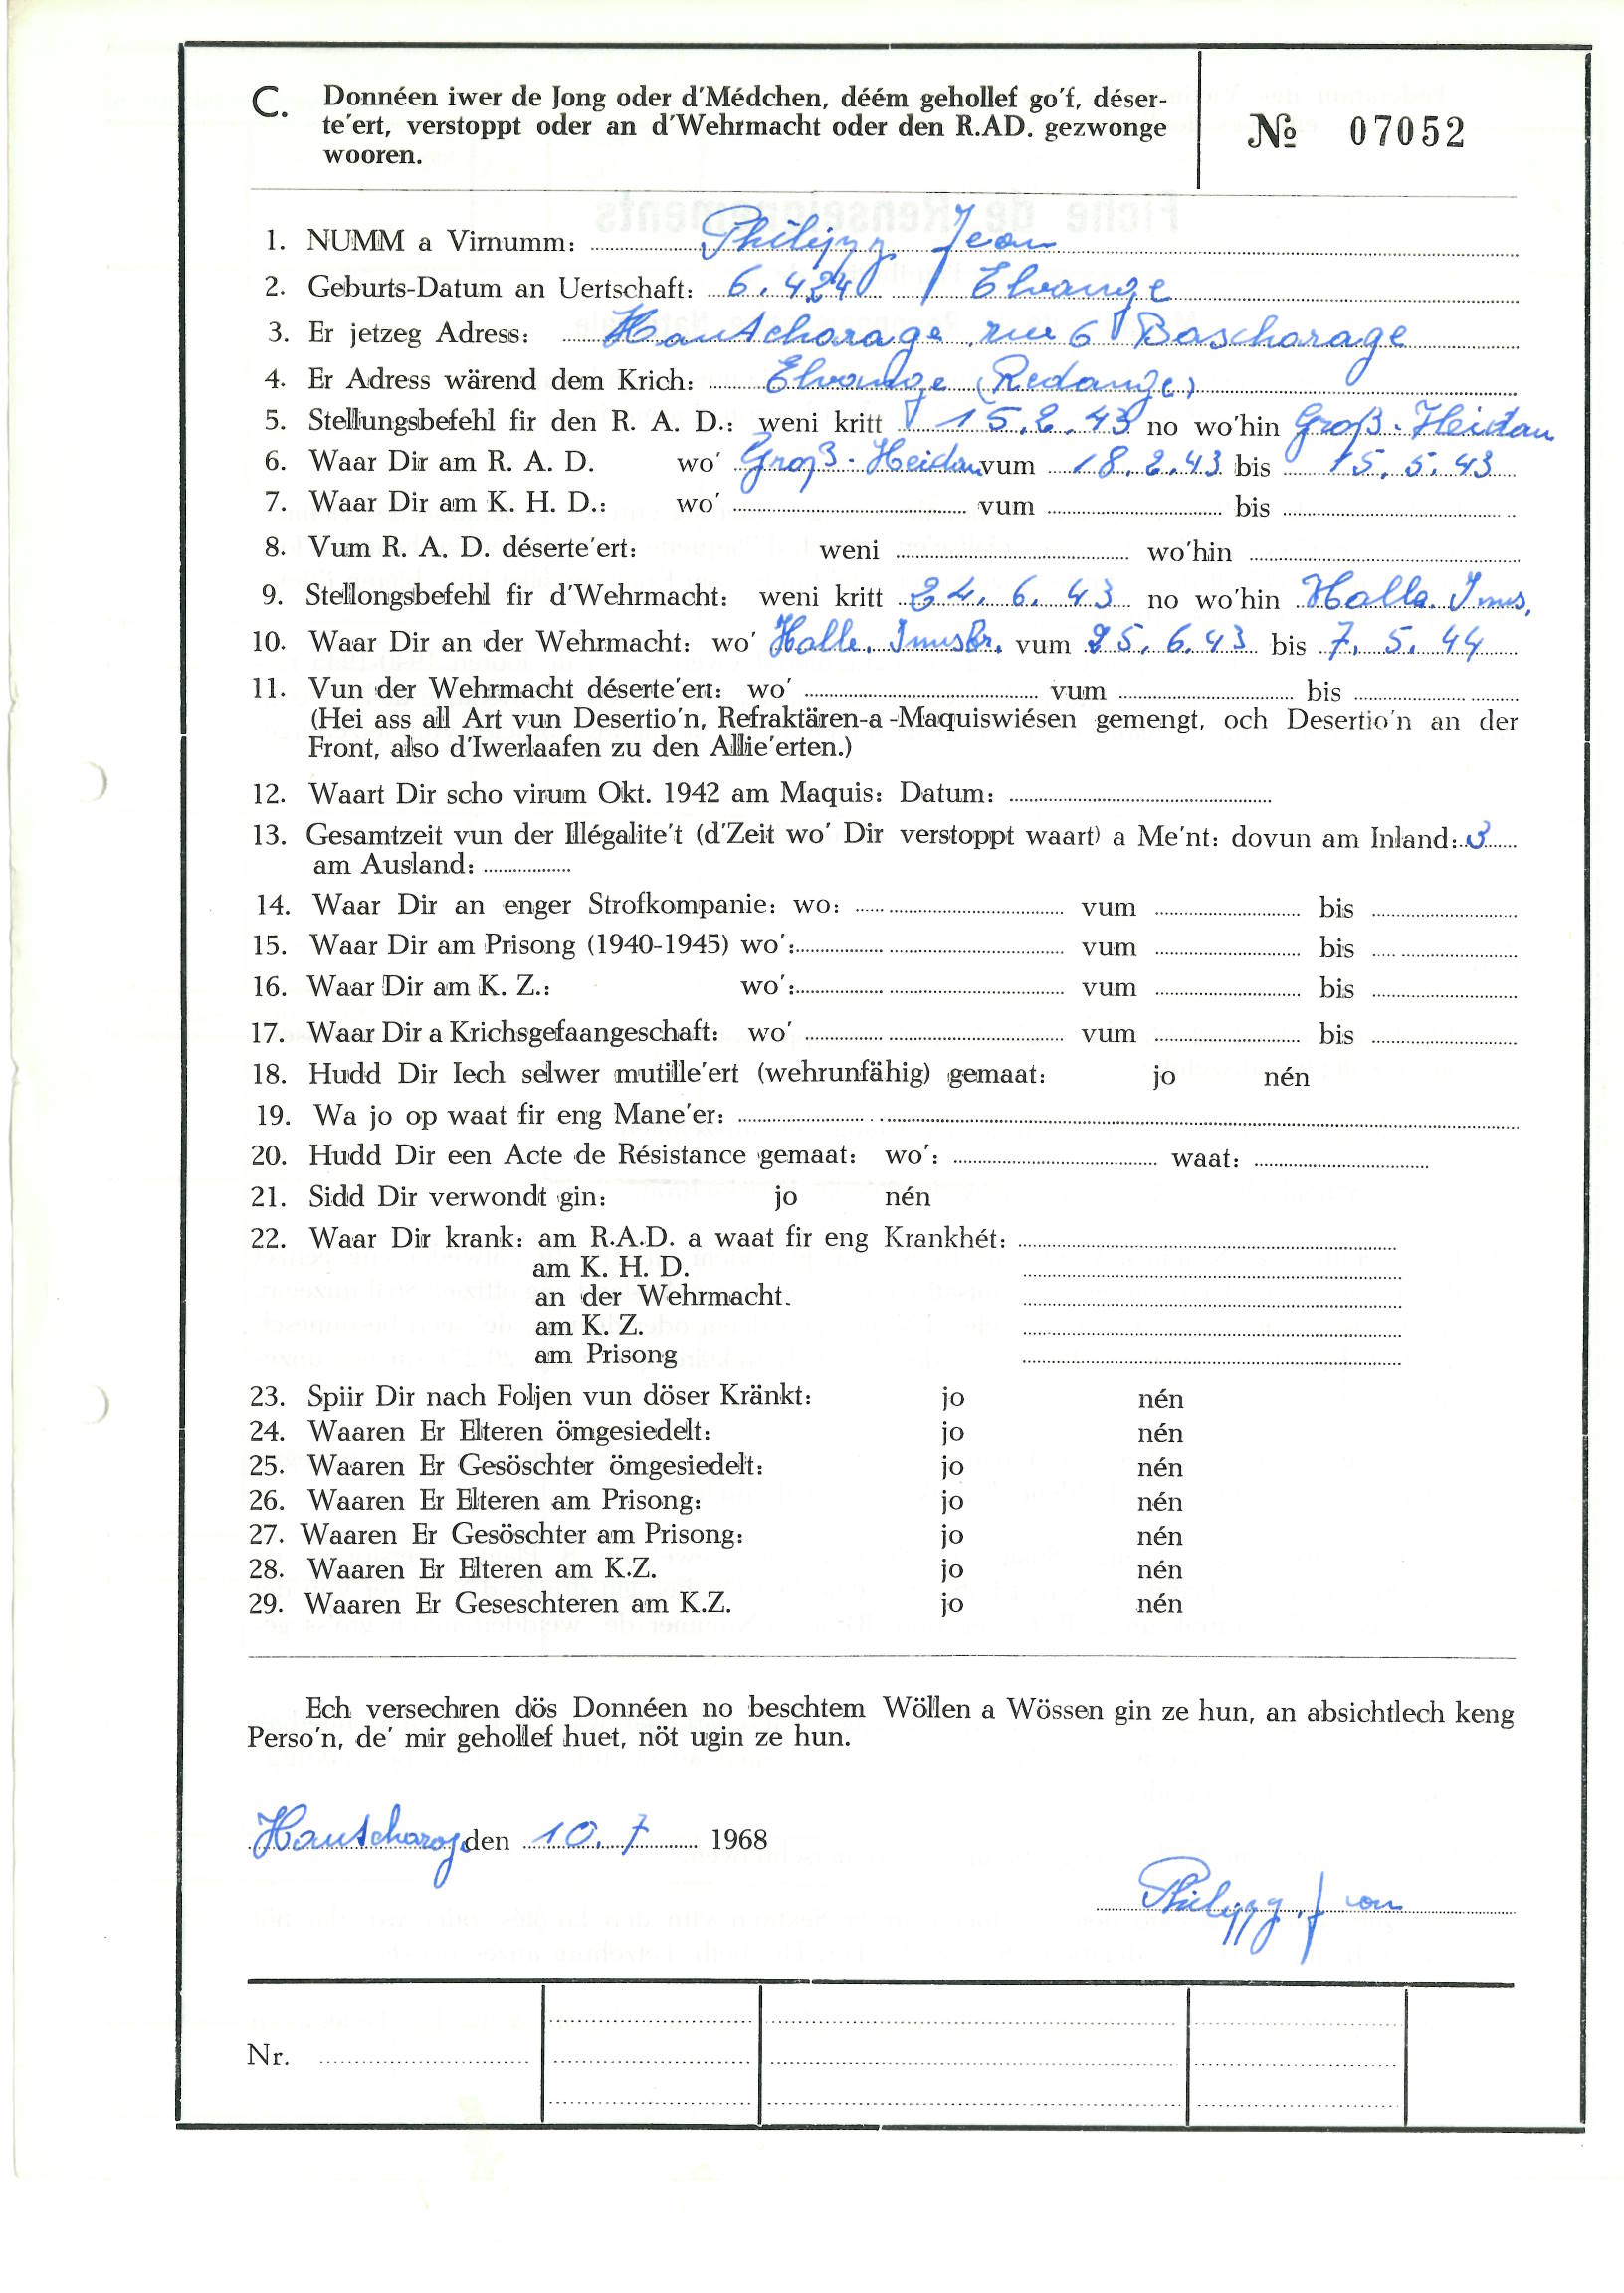 C. Donnéen iwer de Jong oder d'Médchen, déém gehollef go'f, déser-
te'ert, verstoppt oder an d'Wehrmacht oder den R.AD. gezwonge
wooren.
№ 07052
1. NUMM a Virnumm: Philipp Jean
2. Geburts-Datum an Uertschaft: 6.424 Elvange
3. Er jetzeg Adress: Hautcharage rue 6 Bascharage
4. Er Adress wärend dem Krich: Elvange (Redange)
5. Stellungsbefehl fir den R. A. D.: weni kritt 15.2.43 no wo'hin Groß-Heidau
6. Waar Dir am R. A. D. wo' Groß-Heidau vum 18.2.43 bis 15.5.43
7. Waar Dir am K. H. D.: wo' vum bis
8. Vum R. A. D. déserte'ert: weni wo'hin
9. Stellongsbefehl fir d'Wehrmacht: weni kritt 24.6.43 no wo'hin Halle. Inns.
10. Waar Dir an der Wehrmacht: wo' Halle. Innsbr. vum 25.6.43 bis 7.5.44
11. Vun der Wehrmacht déserte'ert: wo' vum bis
(Hei ass all Art vun Desertio'n, Refraktären-a-Maquiswiésen gemengt, och Desertio'n an der
Front, also d'Iwerlaafen zu den Allie'erten.)
12. Waart Dir scho virum Okt. 1942 am Maquis: Datum:
13. Gesamtzeit vun der Illégalite't (d'Zeit wo' Dir verstoppt waart) a Me'nt: dovun am Inland: 3
am Ausland:
14. Waar Dir an enger Strofkompanie: wo: vum bis
15. Waar Dir am Prisong (1940-1945) wo': vum bis
16. Waar Dir am K. Z.: wo': vum bis
17. Waar Dir a Krichsgefaangeschaft: wo' vum bis
18. Hudd Dir Iech selwer mutille'ert (wehrunfähig) gemaat: jo nén
19. Wa jo op waat fir eng Mane'er:
20. Hudd Dir een Acte de Résistance gemaat: wo': waat:
21. Sidd Dir verwondt gin: jo nén
22. Waar Dir krank: am R.A.D. a waat fir eng Krankhét:
am K. H. D.
an der Wehrmacht.
am K. Z.
am Prisong
23. Spiir Dir nach Foljen vun döser Kränkt: jo nén
24. Waaren Er Elteren ömgesiedelt: jo nén
25. Waaren Er Gesöschter ömgesiedelt: jo nén
26. Waaren Er Elteren am Prisong: jo nén
27. Waaren Er Gesöschter am Prisong: jo nén
28. Waaren Er Elteren am K.Z. jo nén
29. Waaren Er Geseschteren am K.Z. jo nén
Ech versechren dös Donnéen no beschtem Wöllen a Wössen gin ze hun, an absichtlech keng
Perso'n, de' mir gehollef huet, nöt ugin ze hun.
Hautcharage den 10.7 1968
Philipp Jean
Nr.